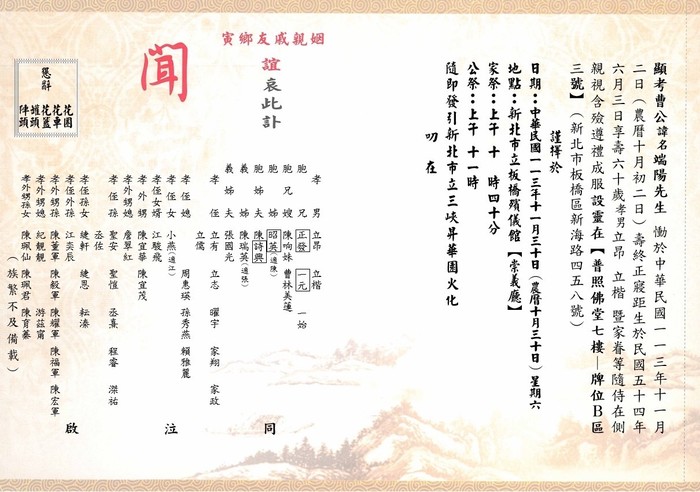 顯考曹公諱名端陽先生 慟於中華民國一一三年十一月
二日(農曆十月初二日)壽終正寢距生於民國五十四年
六月三日享壽六十歲孝男立昂 立楷 暨家眷等隨侍在側
親視含殮遵禮成服設靈在【普照佛堂七樓—牌位B區
三號】(新北市板橋區新海路四五八號)
謹擇於
日期：中華民國一一三年十一月三十日(農曆十月三十日)星期六
地點：新北市立板橋殯儀館【崇義廳】
家祭：上午 十 時四十分
公祭：上午 十一時
隨即發引新北市立三峽昇華園火化
叨 在
姻親戚友鄉寅
誼
哀此訃
聞
孝男 立昂 立楷
胞兄 正發 一元 一始
胞兄嫂 陳响妹 曹林美蓮
胞姊 昭英(適陳)
胞姊夫 陳詩興
義姊 陳瑞英(適張)
義姊夫 張國光
孝侄 立有 立志 曜宇 家翔 家政
立儒
孝侄媳 周惠瑛 孫秀燕 賴雅麗
孝侄女 小燕(適江)
孝侄女婿 江駿飛
孝外甥 陳宜華 陳宜茂
孝外甥媳 詹翠紅
孝侄孫 聖安 聖愷 丞熹 程睿 濼祐
丞佐
孝侄孫女 緁軒 緁恩 耘溱
孝侄外孫 江奕辰
孝外甥孫 陳董軍 陳毅軍 陳耀軍 陳福軍 陳宏軍
孝外甥孫媳 紀靚靚 游茲甯
孝外甥孫女 陳珮仙 陳珮君 陳育蓁
(族繁不及備載)
同 注 啟
懇辭
花圈
花車
花籃
罐頭
陣頭